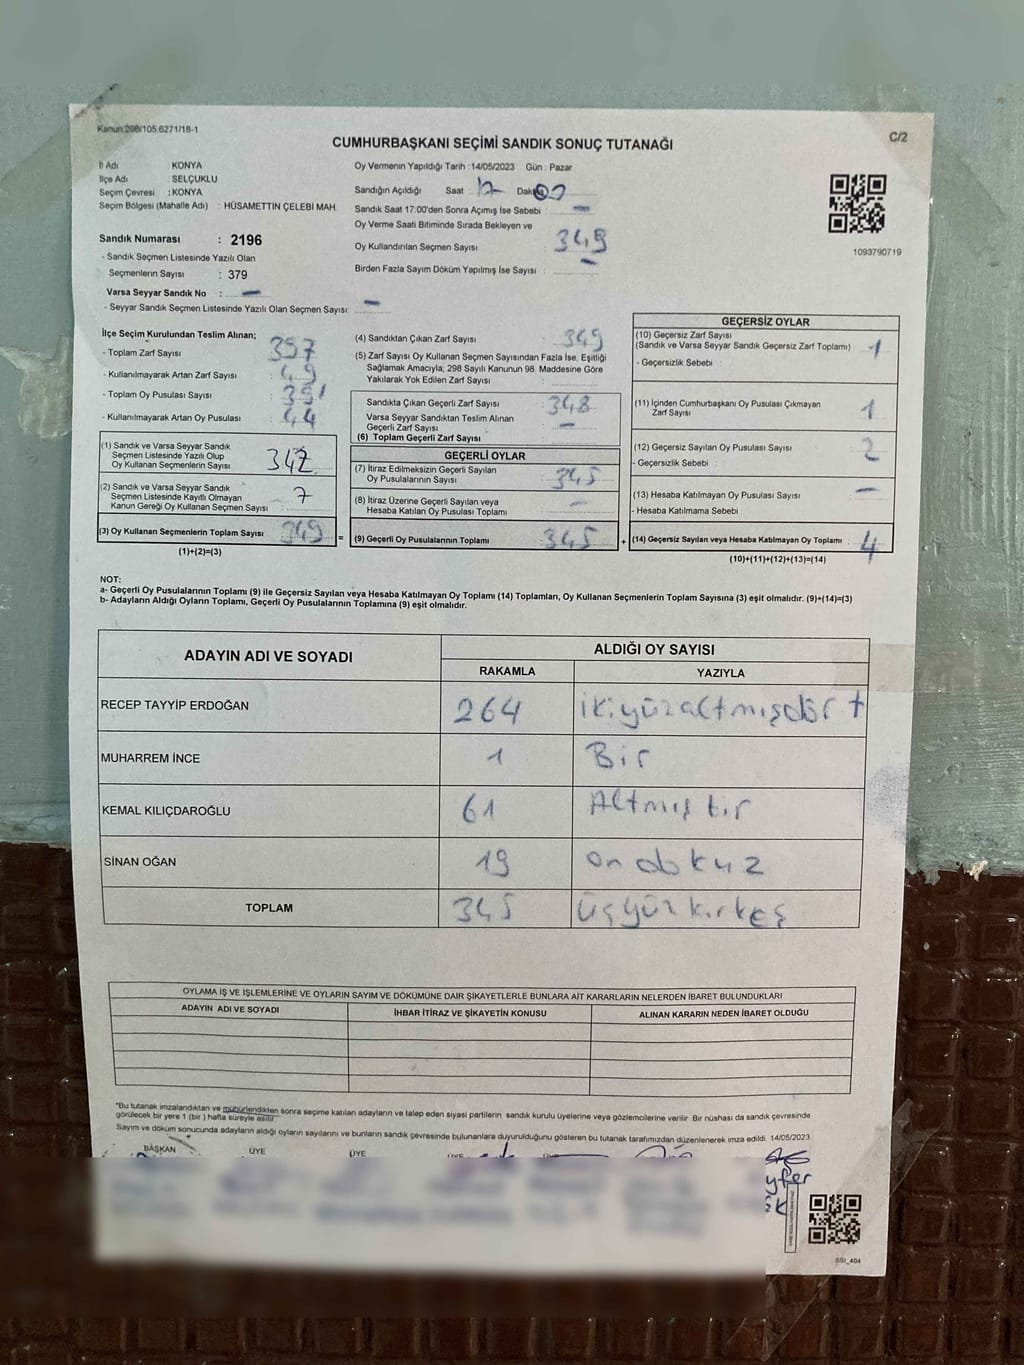 Kanun:298/105,6271/18-1
C/2
CUMHURBAŞKANI SEÇİMİ SANDIK SONUÇ TUTANAĞI
İl Adı KONYA
İlçe Adı : SELÇUKLU
Seçim Çevresi : KONYA
Seçim Bölgesi (Mahalle Adı) : HÜSAMETTİN ÇELEBİ MAH.
Sandık Numarası : 2196
- Sandık Seçmen Listesinde Yazılı Olan
Seçmenlerin Sayısı : 379
Varsa Seyyar Sandık No : -
- Seyyar Sandık Seçmen Listesinde Yazılı Olan Seçmen Sayısı: -
Oy Vermenin Yapıldığı Tarih :14/05/2023 Gün : Pazar
Sandığın Açıldığı Saat 17 Dakika
Sandık Saat 17:00'den Sonra Açılmış İse Sebebi : -
Oy Verme Saati Bitiminde Sırada Bekleyen ve
Oy Kullandırılan Seçmen Sayısı : 349
Birden Fazla Sayım Döküm Yapılmış İse Sayısı : -
1093790719
İlçe Seçim Kurulundan Teslim Alınan;
- Toplam Zarf Sayısı 397
- Kullanılmayarak Artan Zarf Sayısı : 49
- Toplam Oy Pusulası Sayısı : 391
- Kullanılmayarak Artan Oy Pusulası : 44
(1) Sandık ve Varsa Seyyar Sandık
Seçmen Listesinde Yazılı Olup
Oy Kullanan Seçmenlerin Sayısı 342
(2) Sandık ve Varsa Seyyar Sandık
Seçmen Listesinde Kayıtlı Olmayan
Kanun Gereği Oy Kullanan Seçmen Sayısı : 7
(3) Oy Kullanan Seçmenlerin Toplam Sayısı : 349 =
(1)+(2)=(3)
(4) Sandıktan Çıkan Zarf Sayısı : 349
(5) Zarf Sayısı Oy Kullanan Seçmen Sayısından Fazla İse, Eşitliği
Sağlamak Amacıyla; 298 Sayılı Kanunun 98. Maddesine Göre
Yakılarak Yok Edilen Zarf Sayısı :
Sandıkta Çıkan Geçerli Zarf Sayısı : 348
Varsa Seyyar Sandıktan Teslim Alınan
Geçerli Zarf Sayısı : -
(6) Toplam Geçerli Zarf Sayısı
GEÇERLİ OYLAR
(7) İtiraz Edilmeksizin Geçerli Sayılan
Oy Pusulalarının Sayısı : 345
(8) İtiraz Üzerine Geçerli Sayılan veya
Hesaba Katılan Oy Pusulası Toplamı : -
(9) Geçerli Oy Pusulalarının Toplamı : 345 +
GEÇERSİZ OYLAR
(10) Geçersiz Zarf Sayısı
(Sandık ve Varsa Seyyar Sandık Geçersiz Zarf Toplamı) : 1
- Geçersizlik Sebebi :
(11) İçinden Cumhurbaşkanı Oy Pusulası Çıkmayan
Zarf Sayısı : 1
(12) Geçersiz Sayılan Oy Pusulası Sayısı : 2
- Geçersizlik Sebebi :
(13) Hesaba Katılmayan Oy Pusulası Sayısı : -
- Hesaba Katılmama Sebebi
(14) Geçersiz Sayılan veya Hesaba Katılmayan Oy Toplamı : 4
(10)+(11)+(12)+(13)=(14)
NOT:
a- Geçerli Oy Pusulalarının Toplamı (9) ile Geçersiz Sayılan veya Hesaba Katılmayan Oy Toplamı (14) Toplamları, Oy Kullanan Seçmenlerin Toplam Sayısına (3) eşit olmalıdır. (9)+(14)=(3)
b- Adayların Aldığı Oyların Toplamı, Geçerli Oy Pusulalarının Toplamına (9) eşit olmalıdır.
ADAYIN ADI VE SOYADI ALDIĞI OY SAYISI
RAKAMLA YAZIYLA
RECEP TAYYİP ERDOĞAN 264 ikiyüzaltmışdört
MUHARREM İNCE 1 Bir
KEMAL KILIÇDAROĞLU 61 Altmış bir
SİNAN OĞAN 19 on dokuz
TOPLAM 345 üçyüzkırkeş
OYLAMA İŞ VE İŞLEMLERİNE VE OYLARIN SAYIM VE DÖKÜMÜNE DAİR ŞİKAYETLERLE BUNLARA AİT KARARLARIN NELERDEN İBARET BULUNDUKLARI
ADAYIN ADI VE SOYADI İHBAR İTİRAZ VE ŞİKAYETİN KONUSU ALINAN KARARIN NEDEN İBARET OLDUĞU
*Bu tutanak imzalandıktan ve mühürlendikten sonra seçime katılan adayların ve talep eden siyasi partilerin sandık kurulu üyelerine veya gözlemcilerine verilir. Bir nüshası da sandık çevresinde
görülecek bir yere 1 (bir ) hafta süreyle asılır.
Sayım ve döküm sonucunda adayların aldığı oyların sayılarını ve bunların sandık çevresinde bulunanlara duyurulduğunu gösteren bu tutanak tarafımızdan düzenlenerek imza edildi. 14/05/2023
BAŞKAN ÜYE ÜYE ÜYE